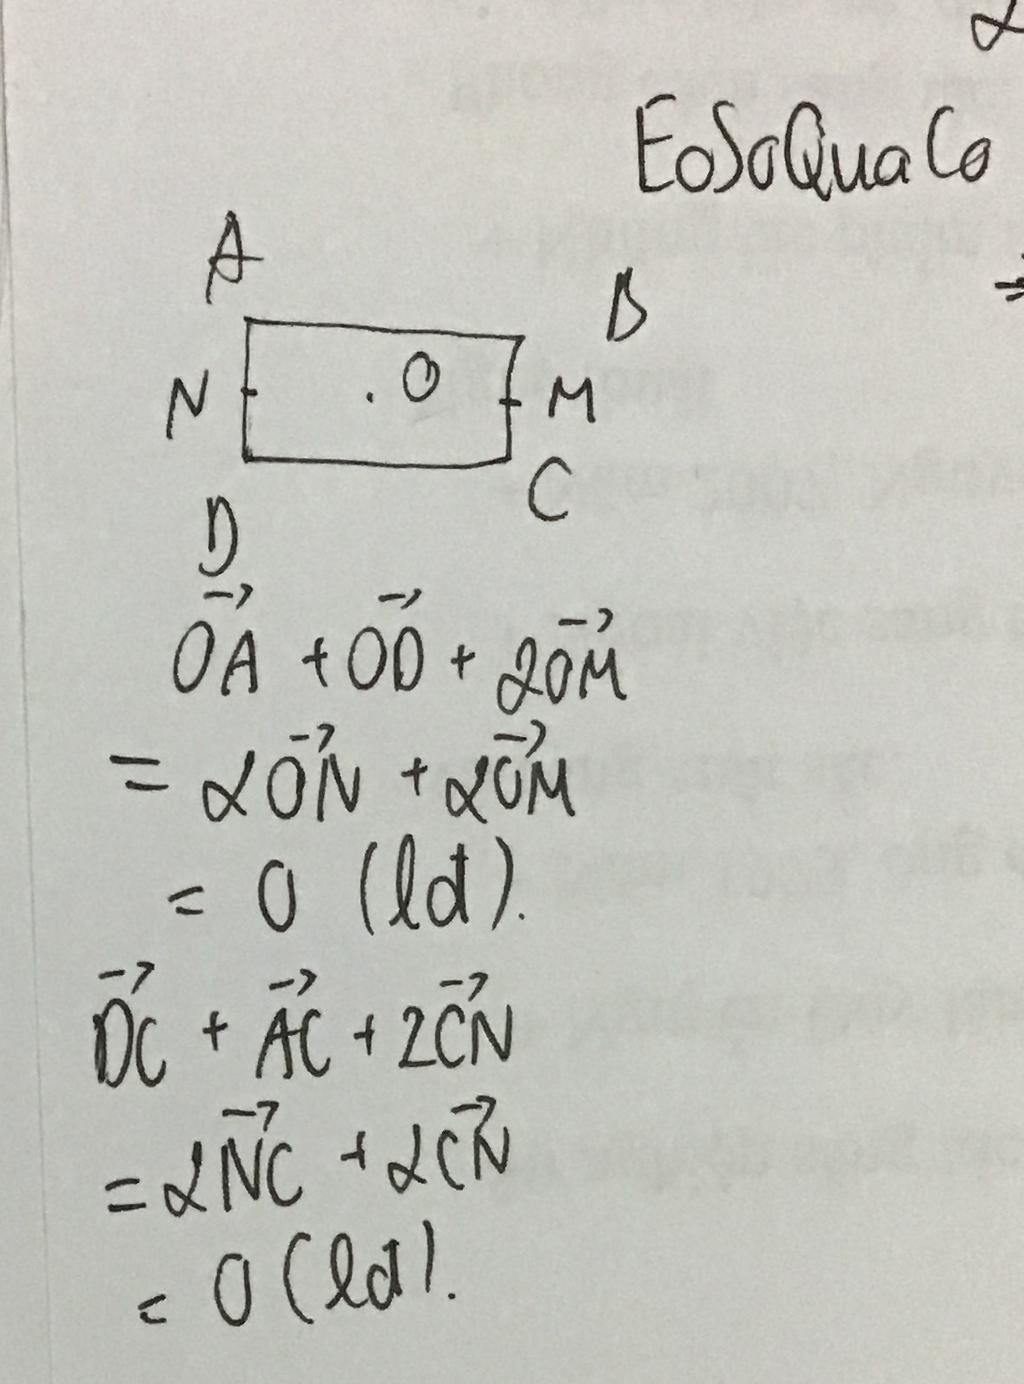 EoSoQuaCo
A
B
N . O M
C
D
\overrightarrow{OA} + \overrightarrow{OD} + 2\overrightarrow{OM}
= 2\overrightarrow{ON} + 2\overrightarrow{OM}
= 0 (lđ).
\overrightarrow{DC} + \overrightarrow{AC} + 2\overrightarrow{CN}
= 2\overrightarrow{NC} + 2\overrightarrow{CN}
= 0 (lđ).